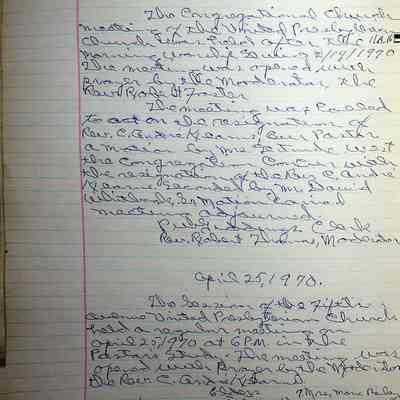 The Congregational Church
meeting of the United Presbyterian
Church was held after the 11 A.M.
morning worship Service 4/19/1970
The meeting was opened with
prayer by the Moderator, the
Rev. Robert
The meeting was called
to act on the resignation of
Rev. C. André Kearns, our Pastor
a motion by Mrs.
the Congregation Concur with
the resignation of the Rev. C. André
Kearns, Seconded by Mr. David
Motion Carried
meeting adjourned.
Clerk
Rev. Robert Moderator
April 25, 1970.
The Session of the Fifth
avenue United Presbyterian Church
held a regular meeting on
april 25, 1970 at 6 P.M. in the
Pastor's Study. The meeting was
opened with Prayer by the Moderator
the Rev. C. André Kearns
Elders Mrs. Marie